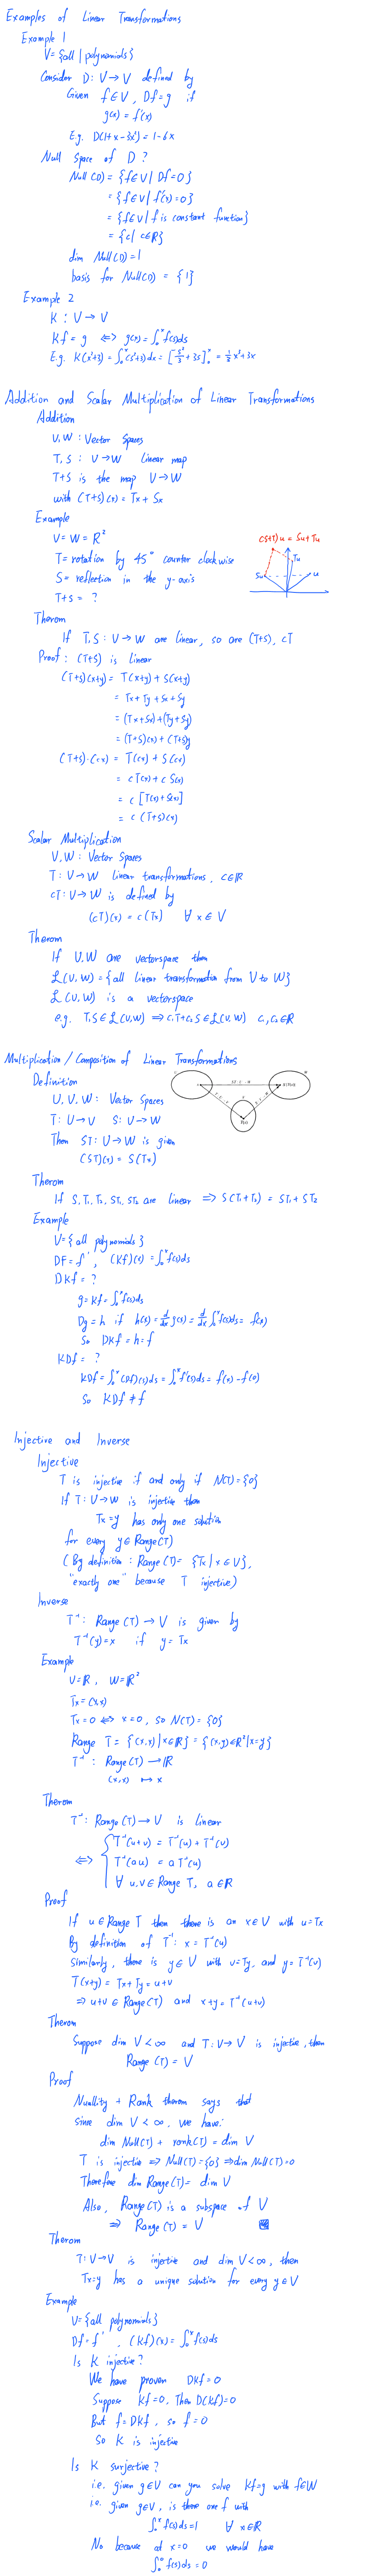 Examples of Linear Transformations
Example 1
V={all | polynomials}
Consider D: V→V defined by
Given f∈V, Df=g if
g(x) = f'(x)
E.g. D(1+x-3x²) = 1-6x
Null Space of D ?
Null(D) = {f∈V | Df=0}
= {f∈V | f'(x)=0}
= {f∈V | f is constant function}
= {c | c∈ℝ}
dim Null(D)=1
basis for Null(D) = {1}
Example 2
K : V→V
Kf = g ⇔ g(x) = ∫₀ˣ f(s)ds
E.g. K(x²+3) = ∫₀ˣ(s²+3)dx = [s³/3 + 3s]₀ˣ = ⅓x³+3x
Addition and Scalar Multiplication of Linear Transformations
Addition
V, W : Vector Spaces
T, S : V→W Linear map
T+S is the map V→W
with (T+S)(x) = Tx + Sx
Example
V = W = ℝ²
T = rotation by 45° counter clockwise
S = reflection in the y-axis
T+S = ?
(S+T)u = Su+Tu
Tu
Su
u
Therom
If T, S : V→W are linear, so are (T+S), cT
Proof : (T+S) is linear
(T+S)(x+y) = T(x+y) + S(x+y)
= Tx + Ty + Sx + Sy
= (Tx+Sx)+(Ty+Sy)
= (T+S)(x) + (T+S)y
(T+S)·(cx) = T(cx) + S(cx)
= cT(x) + c S(x)
= c [T(x) + S(x)]
= c (T+S)(x)
Scalar Multiplication
V, W : Vector Spaces
T : V→W Linear transformations, c∈ℝ
cT : V→W is defined by
(cT)(x) = c(Tx) ∀ x∈V
Therom
If V, W are vectorspace then
ℒ(V,W) = {all linear transformation from V to W}
ℒ(V,W) is a vectorspace
e.g. T, S∈ℒ(V,W) ⇒ c₁T+c₂S∈ℒ(V,W) c₁,c₂∈ℝ
Multiplication / Composition of Linear Transformations
Definition
U, V, W : Vector Spaces
T : U→V S : V→W
Then ST : U→W is given
(ST)(x) = S(Tx)
Therom
If S, T₁, T₂, ST₁, ST₂ are linear ⇒ S(T₁+T₂) = ST₁ + ST₂
Example
V={all polynomials}
DF = f', (Kf)(x) = ∫₀ˣ f(s)ds
DKf = ?
g = Kf = ∫₀ˣ f(s)ds
Dg = h if h(x) = d/dx g(x) = d/dx ∫₀ˣ f(s)ds = f(x)
So DKf = h = f
KDf = ?
KDf = ∫₀ˣ (Df)(s)ds = ∫₀ˣ f'(s)ds = f(x) - f(0)
So KDf ≠ f
Injective and Inverse
Injective
T is injective if and only if N(T)={0}
If T : V→W is injective then
Tx=y has only one solution
for every y∈Range(T)
(By definition : Range(T) = {Tx | x∈V},
"exactly one" because T injective)
Inverse
T⁻¹ : Range(T)→V is given by
T⁻¹(y)=x if y=Tx
Example
V=ℝ, W=ℝ²
Tx=(x,x)
Tx=0 ⇔ x=0, so N(T)={0}
Range T = {(x,x) | x∈ℝ} = {(x,y)∈ℝ² | x=y}
T⁻¹ : Range(T)→ℝ
(x,x) ↦ x
Therom
T⁻¹ : Range(T)→V is linear
T⁻¹(u+v) = T⁻¹(u) + T⁻¹(v)
⇔ T⁻¹(au) = aT⁻¹(u)
∀ u,v∈Range T, a∈ℝ
Proof
If u∈Range T then there is an x∈V with u=Tx
By definition of T⁻¹ : x = T⁻¹(u)
Similarly, there is y∈V with v=Ty, and y=T⁻¹(v)
T(x+y) = Tx+Ty = u+v
⇒ u+v∈Range(T) and x+y=T⁻¹(u+v)
Therom
Suppose dim V<∞ and T : V→V is injective, then
Range(T) = V
Proof
Nuallity + Rank therom says that
since dim V<∞, we have:
dim Null(T) + rank(T) = dim V
T is injective ⇒ Null(T)={0} ⇒ dim Null(T)=0
Therefore dim Range(T) = dim V
Also, Range(T) is a subspace of V
⇒ Range(T) = V
Therom
T : V→V is injective and dim V<∞, then
Tx=y has a unique solution for every y∈V
Example
V={all polynomials}
Df=f', (Kf)(x) = ∫₀ˣ f(s)ds
Is K injective?
We have proven DKf=0
Suppose Kf=0, Then D(Kf)=0
But f=DKf, so f=0
So K is injective
Is K surjective?
i.e. given g∈V can you solve Kf=g with f∈W
i.e. given g∈V, is there one f with
∫₀ˣ f(s)ds=1 ∀ x∈ℝ
No because at x=0 we would have
∫₀⁰ f(s)ds=0